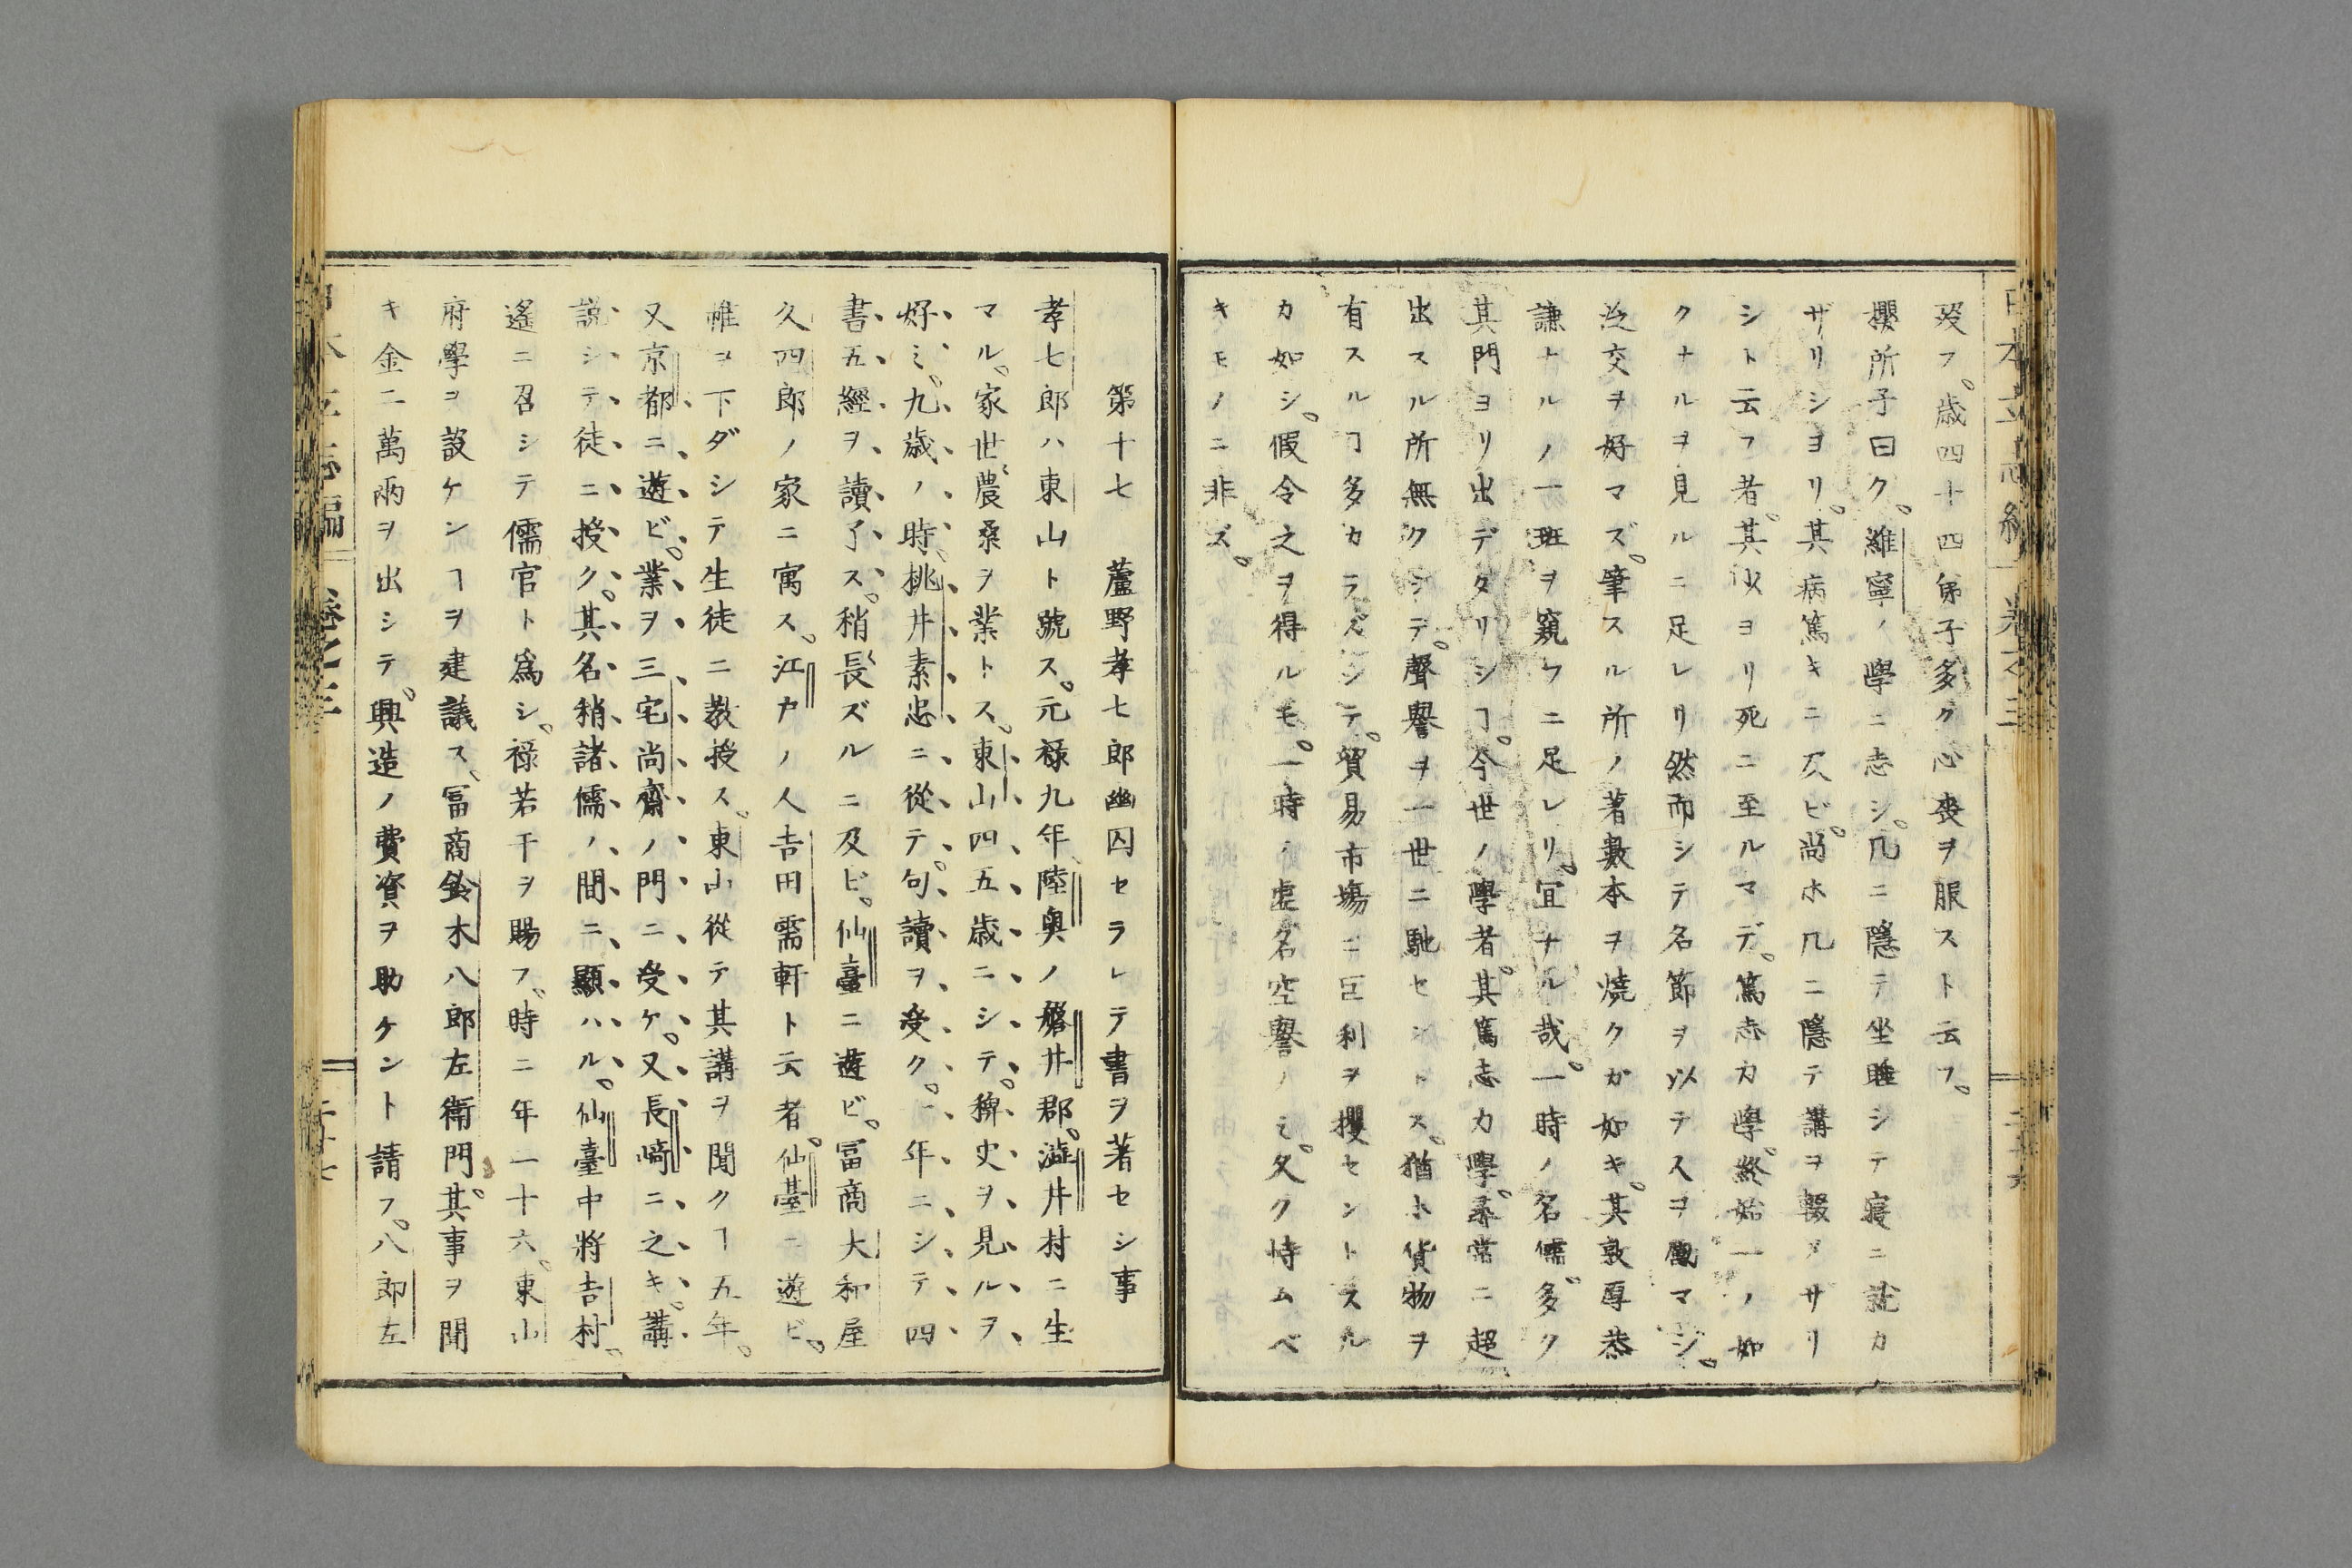 歿フ。歳四十四弟子多ク心喪ヲ服スト云フ。
櫻所子曰ク。維寧ノ學ニ志シ。几ニ隱テ坐睡シテ寝ニ就カ
ザリシヨリ。其病篤キニ及ビ。尚ホ几ニ隱テ講ヲ輟メザリ
シト云フ者。其少ヨリ死ニ至ルマデ。篤志力學。終始一ノ如
クナルヲ見ルニ足レリ然而シテ名節ヲ以テスヲ勵マシ。
泛交ヲ好マズ。筆スル所ノ著數本ヲ燒クガ如キ。其敦厚恭
謙ナルノ一斑ヲ窺フニ足レリ。宜ナル哉。一時ノ名儒。多ク
其門ヨリ出デタリシヿ。今世ノ學者。其篤志力學。尋常ニ超
出スル所無クシテ。聲譽ヲ一世ニ馳セントス。猶ホ貨物ヲ
有スルヿ多カラズシテ。貿易市塲ニ巨利ヲ攫セントスル
カ如シ。假令之ヲ得ルモ。一時ノ虚名空譽ノミ。久ク恃ムベ
キモノニ非ズ。
日本立志編 卷之三 二十六
第十七 蘆野孝七郎幽囚セラレテ書ヲ著セシ事
孝七郎ハ東山ト號ス。元禄九年陸奥ノ磐井郡。澁井村ニ生
マル。家世〻農桑ヲ業トス。東山四五歳ニシテ。稗史ヲ見ルヲ
好ミ。九歳ノ時。桃井素忠ニ從テ。句讀ヲ受ク。一年ニシテ四
書五經ヲ讀了ス。稍〻長ズルニ及ビ。仙臺ニ遊ビ。冨商大和屋
久四郎ノ家ニ寓ス。江戸ノ人吉田儒軒ト云者。仙臺ニ遊ビ。
帷ヲ下ダシテ生徒ニ教授ス。東山從テ其講ヲ聞クヿ五年。
又京都ニ遊ビ。業ヲ三宅尚齋ノ門ニ受ケ。又長﨑ニ之キ。講
説シテ徒ニ授ク。其名稍諸儒ノ間ニ顯ハル。仙臺中將吉村。
遙ニ召シテ儒官ト爲シ。禄若干ヲ賜フ。時ニ年二十六。東山
府學ヲ設ケンヿヲ建議ス。冨商鈴木八郎左衛門。其事ヲ聞
キ金二萬兩ヲ出シテ。興造ノ費資ヲ助ケント請フ。八郎左
日本立志編 卷之三 二十七